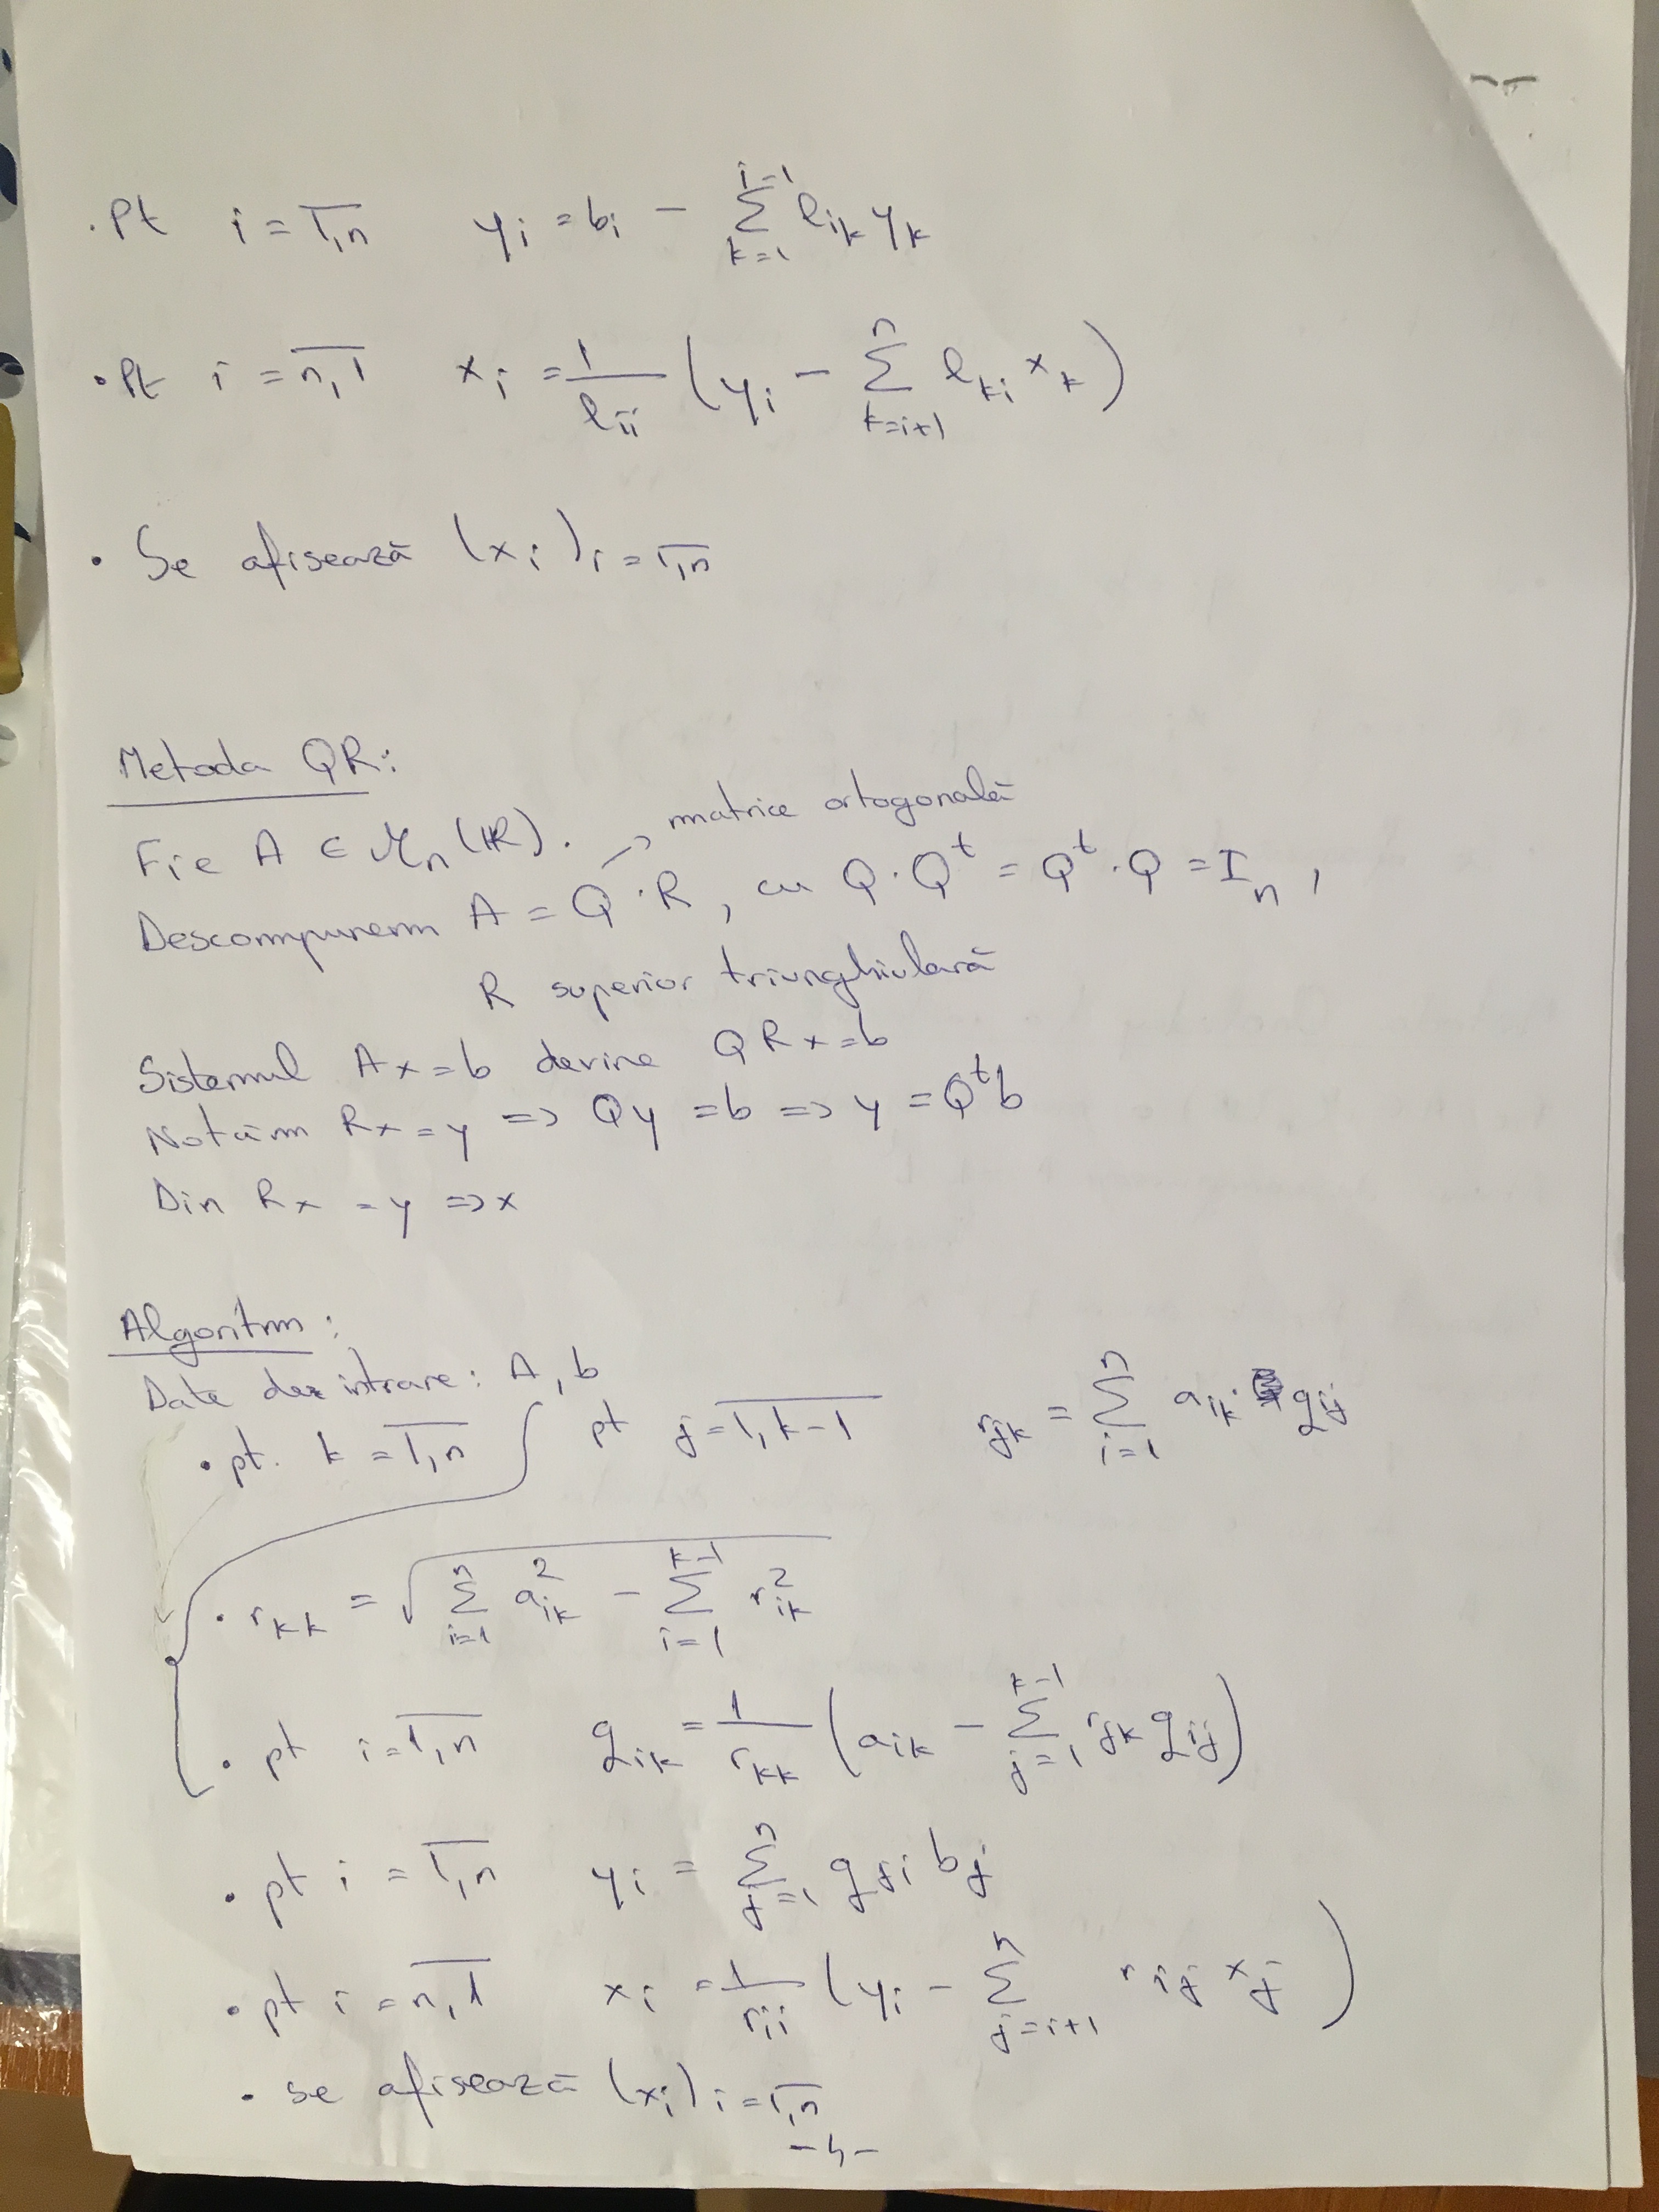 · Pt i = \overline{1,n} y_i = b_i - \sum_{k=1}^{i-1} l_{ik} y_k
· Pt i = \overline{n,1} x_i = \frac{1}{l_{ii}} ( y_i - \sum_{k=i+1}^{n} l_{ki} x_k )
· Se afisează (x_i)_{i = \overline{1,n}}
Metoda QR:
→ matrice ortogonală
Fie A ∈ M_n(ℝ).
Descompunem A = Q · R, cu Q · Q^t = Q^t · Q = I_n,
R superior triunghiulară
Sistemul Ax = b devine QRx = b
Notăm Rx = y => Qy = b => y = Q^t b
Din Rx = y => x
Algoritm:
Date de intrare: A, b
· pt. k = \overline{1,n} pt j = \overline{1,k-1} r_{jk} = \sum_{i=1}^{n} a_{ik} q_{ij}
· r_{kk} = \sqrt{\sum_{i=1}^{n} a_{ik}^2 - \sum_{i=1}^{k-1} r_{ik}^2}
· pt i = \overline{1,n} q_{ik} = \frac{1}{r_{kk}} ( a_{ik} - \sum_{j=1}^{k-1} r_{jk} q_{ij} )
· pt i = \overline{1,n} y_i = \sum_{j=1}^{n} q_{ji} b_j
· pt i = \overline{n,1} x_i = \frac{1}{r_{ii}} ( y_i - \sum_{j=i+1}^{n} r_{ij} x_j )
· se afisează (x_i)_{i = \overline{1,n}}